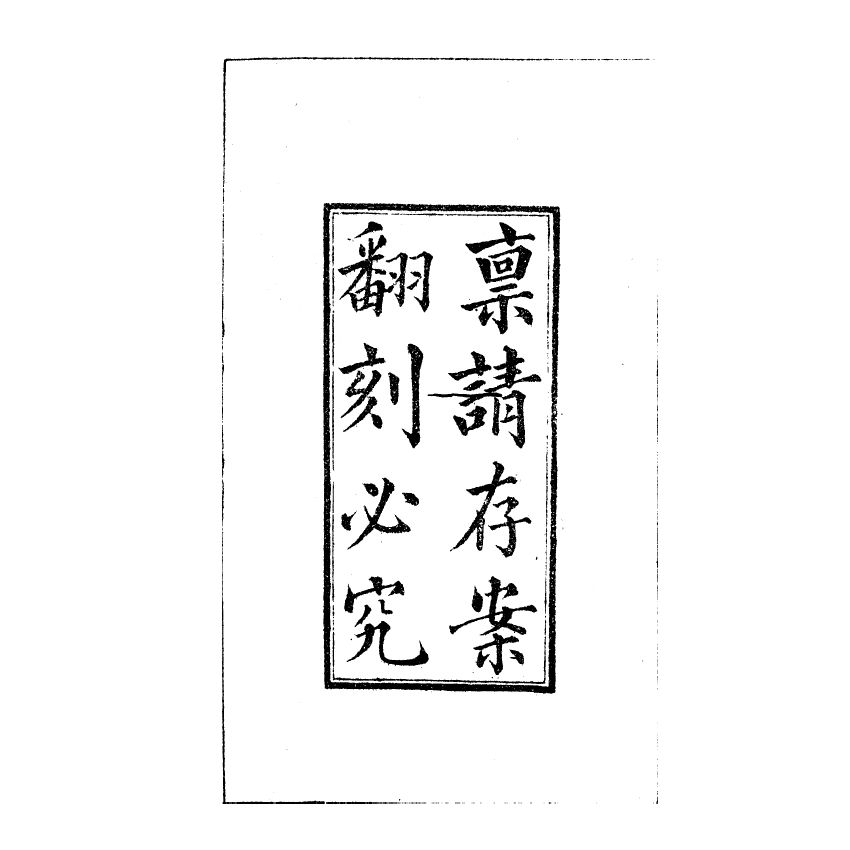 禀請存案
翻刻必究